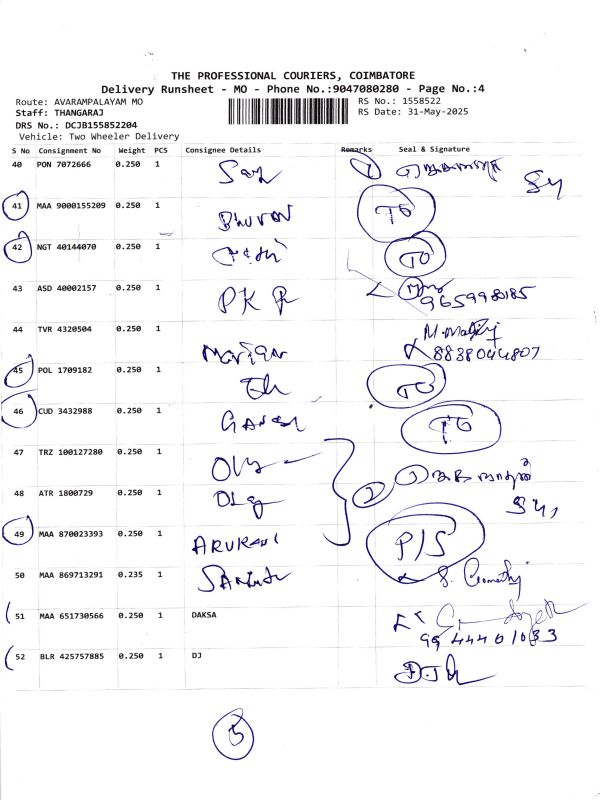 THE PROFESSIONAL COURIERS, COIMBATORE
Delivery Runsheet - MO - Phone No.:9047080280 - Page No.:4
Route: AVARAMPALAYAM MO RS No.: 1558522
Staff: THANGARAJ RS Date: 31-May-2025
DRS No.: DCJB155852204
Vehicle: Two Wheeler Delivery
S No Consignment No Weight PCS Consignee Details Remarks Seal & Signature
40 PON 7072666 0.250 1 1
41 MAA 9000155209 0.250 1 BHUVAN TO
42 NGT 40144070 0.250 1 TO
43 ASD 40002157 0.250 1 PKR 9659980185
44 TVR 4320504 0.250 1 Marian 8838044807
45 POL 1709182 0.250 1 TO
46 CUD 3432988 0.250 1 GANESH TO
47 TRZ 100127280 0.250 1
48 ATR 1800729 0.250 1 2
49 MAA 870023393 0.250 1 P/S
50 MAA 869713291 0.235 1 S. Gomathi
51 MAA 651730566 0.250 1 DAKSA 9944401033
52 BLR 425757885 0.250 1 DJ
5